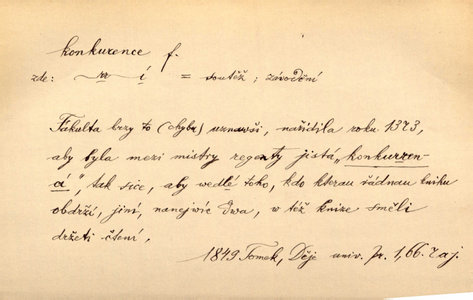 konkurence f.
zde: ~ í = soutěž; závodění
Fakulta brzy to (chybu) uznavši, nařídila roku 1373,
aby byla mezi mistry regenty jistá „konkurren-
cí", tak sice, aby wedlé toho, kdo kterau řádnau knihu
obdrží, jiní, nanejwíc dwa, w též knize směli
držeti čtení.
1849 Tomek, Děje univ. Pr. 1,66.